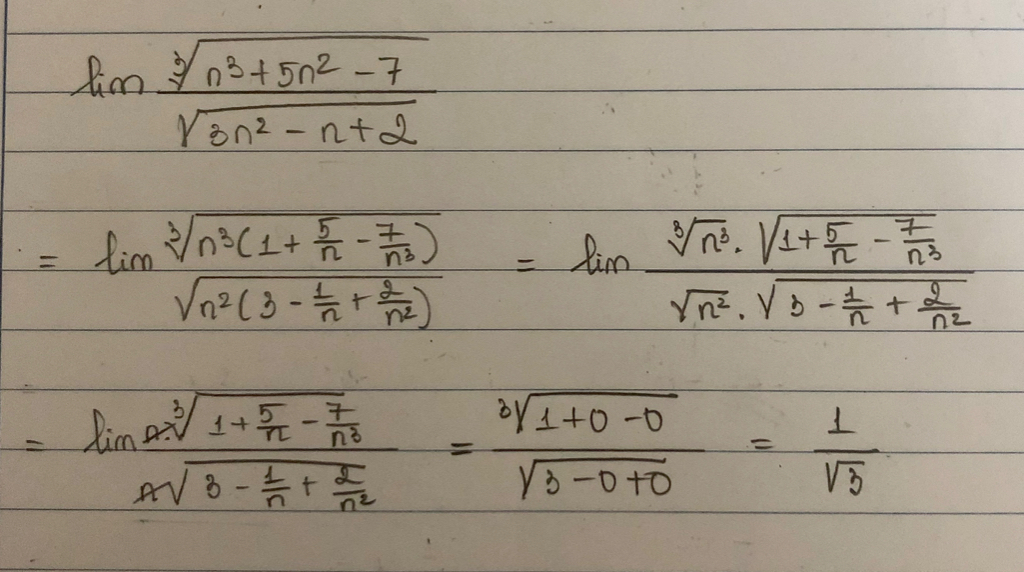 lim ∛(n³ + 5n² − 7) / √(3n² − n + 2)
= lim ∛(n³(1 + 5/n − 7/n³)) / √(n²(3 − 1/n + 2/n²)) = lim ∛n³ . √(1 + 5/n − 7/n³) / √n² . √(3 − 1/n + 2/n²)
= lim n.∛(1 + 5/n − 7/n³) / n√(3 − 1/n + 2/n²) = ∛(1 + 0 − 0) / √(3 − 0 + 0) = 1 / √3